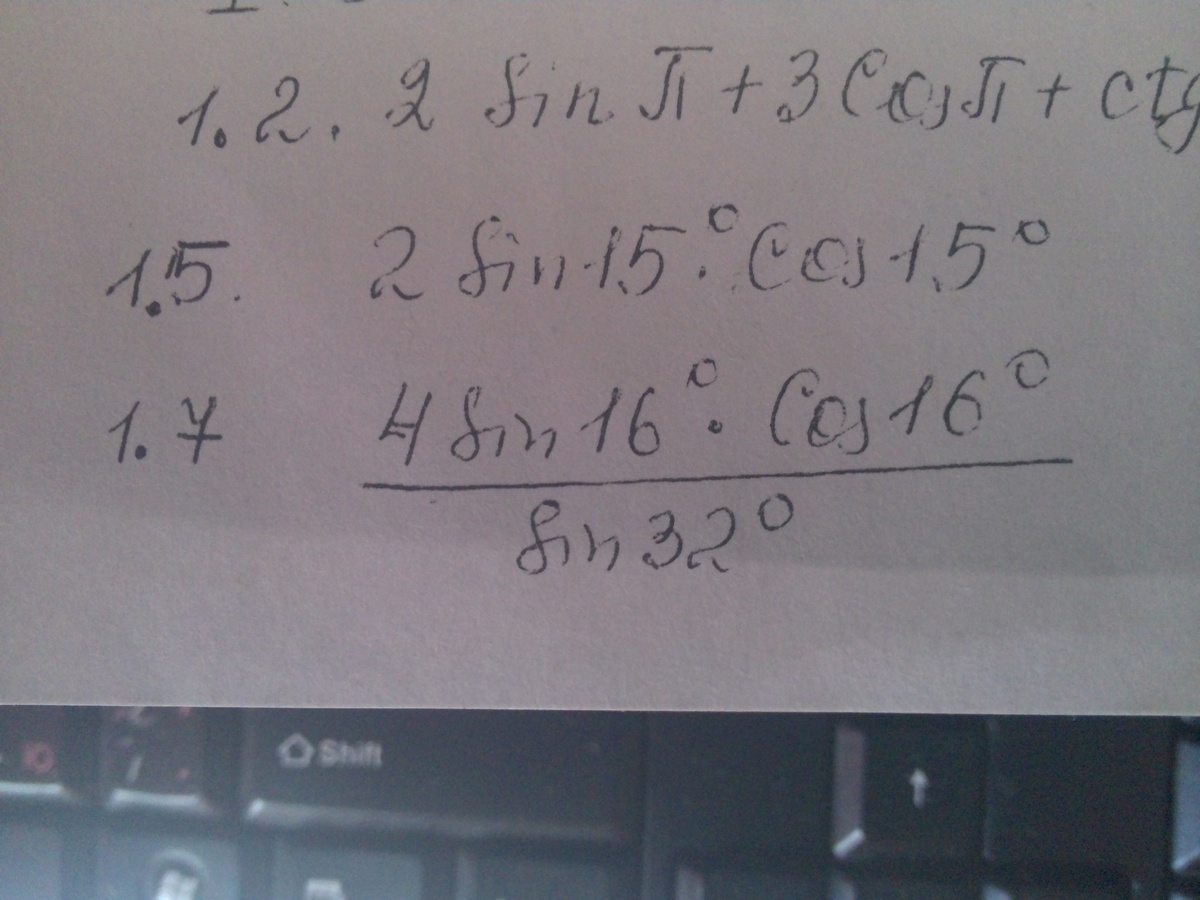 1.2. 2 sin π + 3 cos π + ctg
1.5. 2 sin 15° · cos 15°
1.7 4 sin 16° · cos 16°
sin 32°
Shift
↑